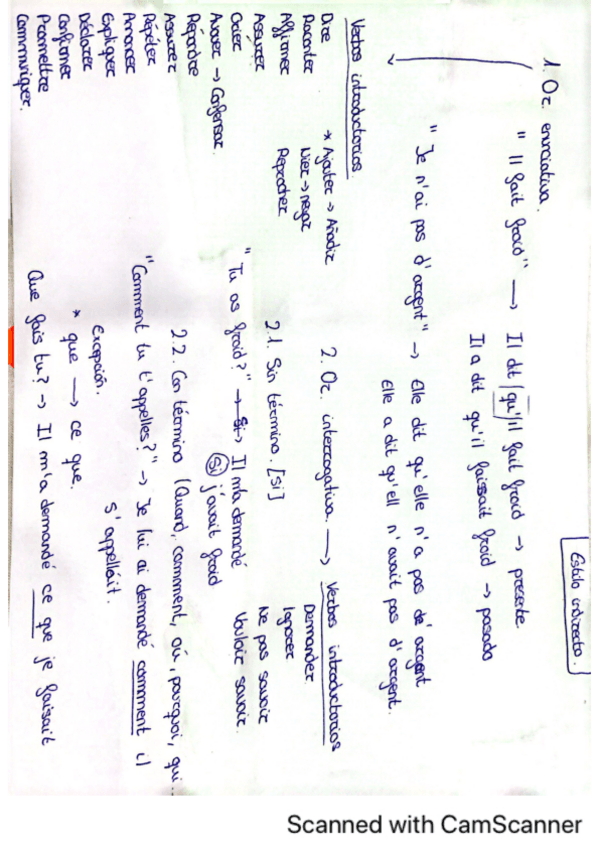 Estilo indirecto.
1. Or. enunciativa.
"Il fait froid" → Il dit qu'il fait froid → presente
Il a dit qu'il faissait froid → pasado
"Je n'ai pas d'argent" → Elle dit qu'elle n'a pas de argent
Elle a dit qu'ell n'avait pas d'argent.
Verbos introductorios.
Dire
Raconter
Affirmer
Assurer
Crier
Avouer → Confensar.
Répondre
Assurer
Répéter
Annoncer
Expliquer
Déclarer
Confirmer
Promettre
Communiquer.
* Ajouter → Añadir
Nier → negar
Reprocher
2. Or. interrogativa. → Verbos introductorios
Demander
Ignorer
Ne pas savoir
Vouloir savoir.
2.1. Sin término. [Si]
"Tu as froid?" → Si → Il m'a demandé
Si j'avait froid
2.2. Con término (Quand, comment, où, pourquoi, qui...
"Comment tu t'appelles?" → Je lui ai demandé comment il
s'appellait.
excepción.
* que → ce que.
Que fais tu? → Il m'a demandé ce que je faisait
Scanned with CamScanner